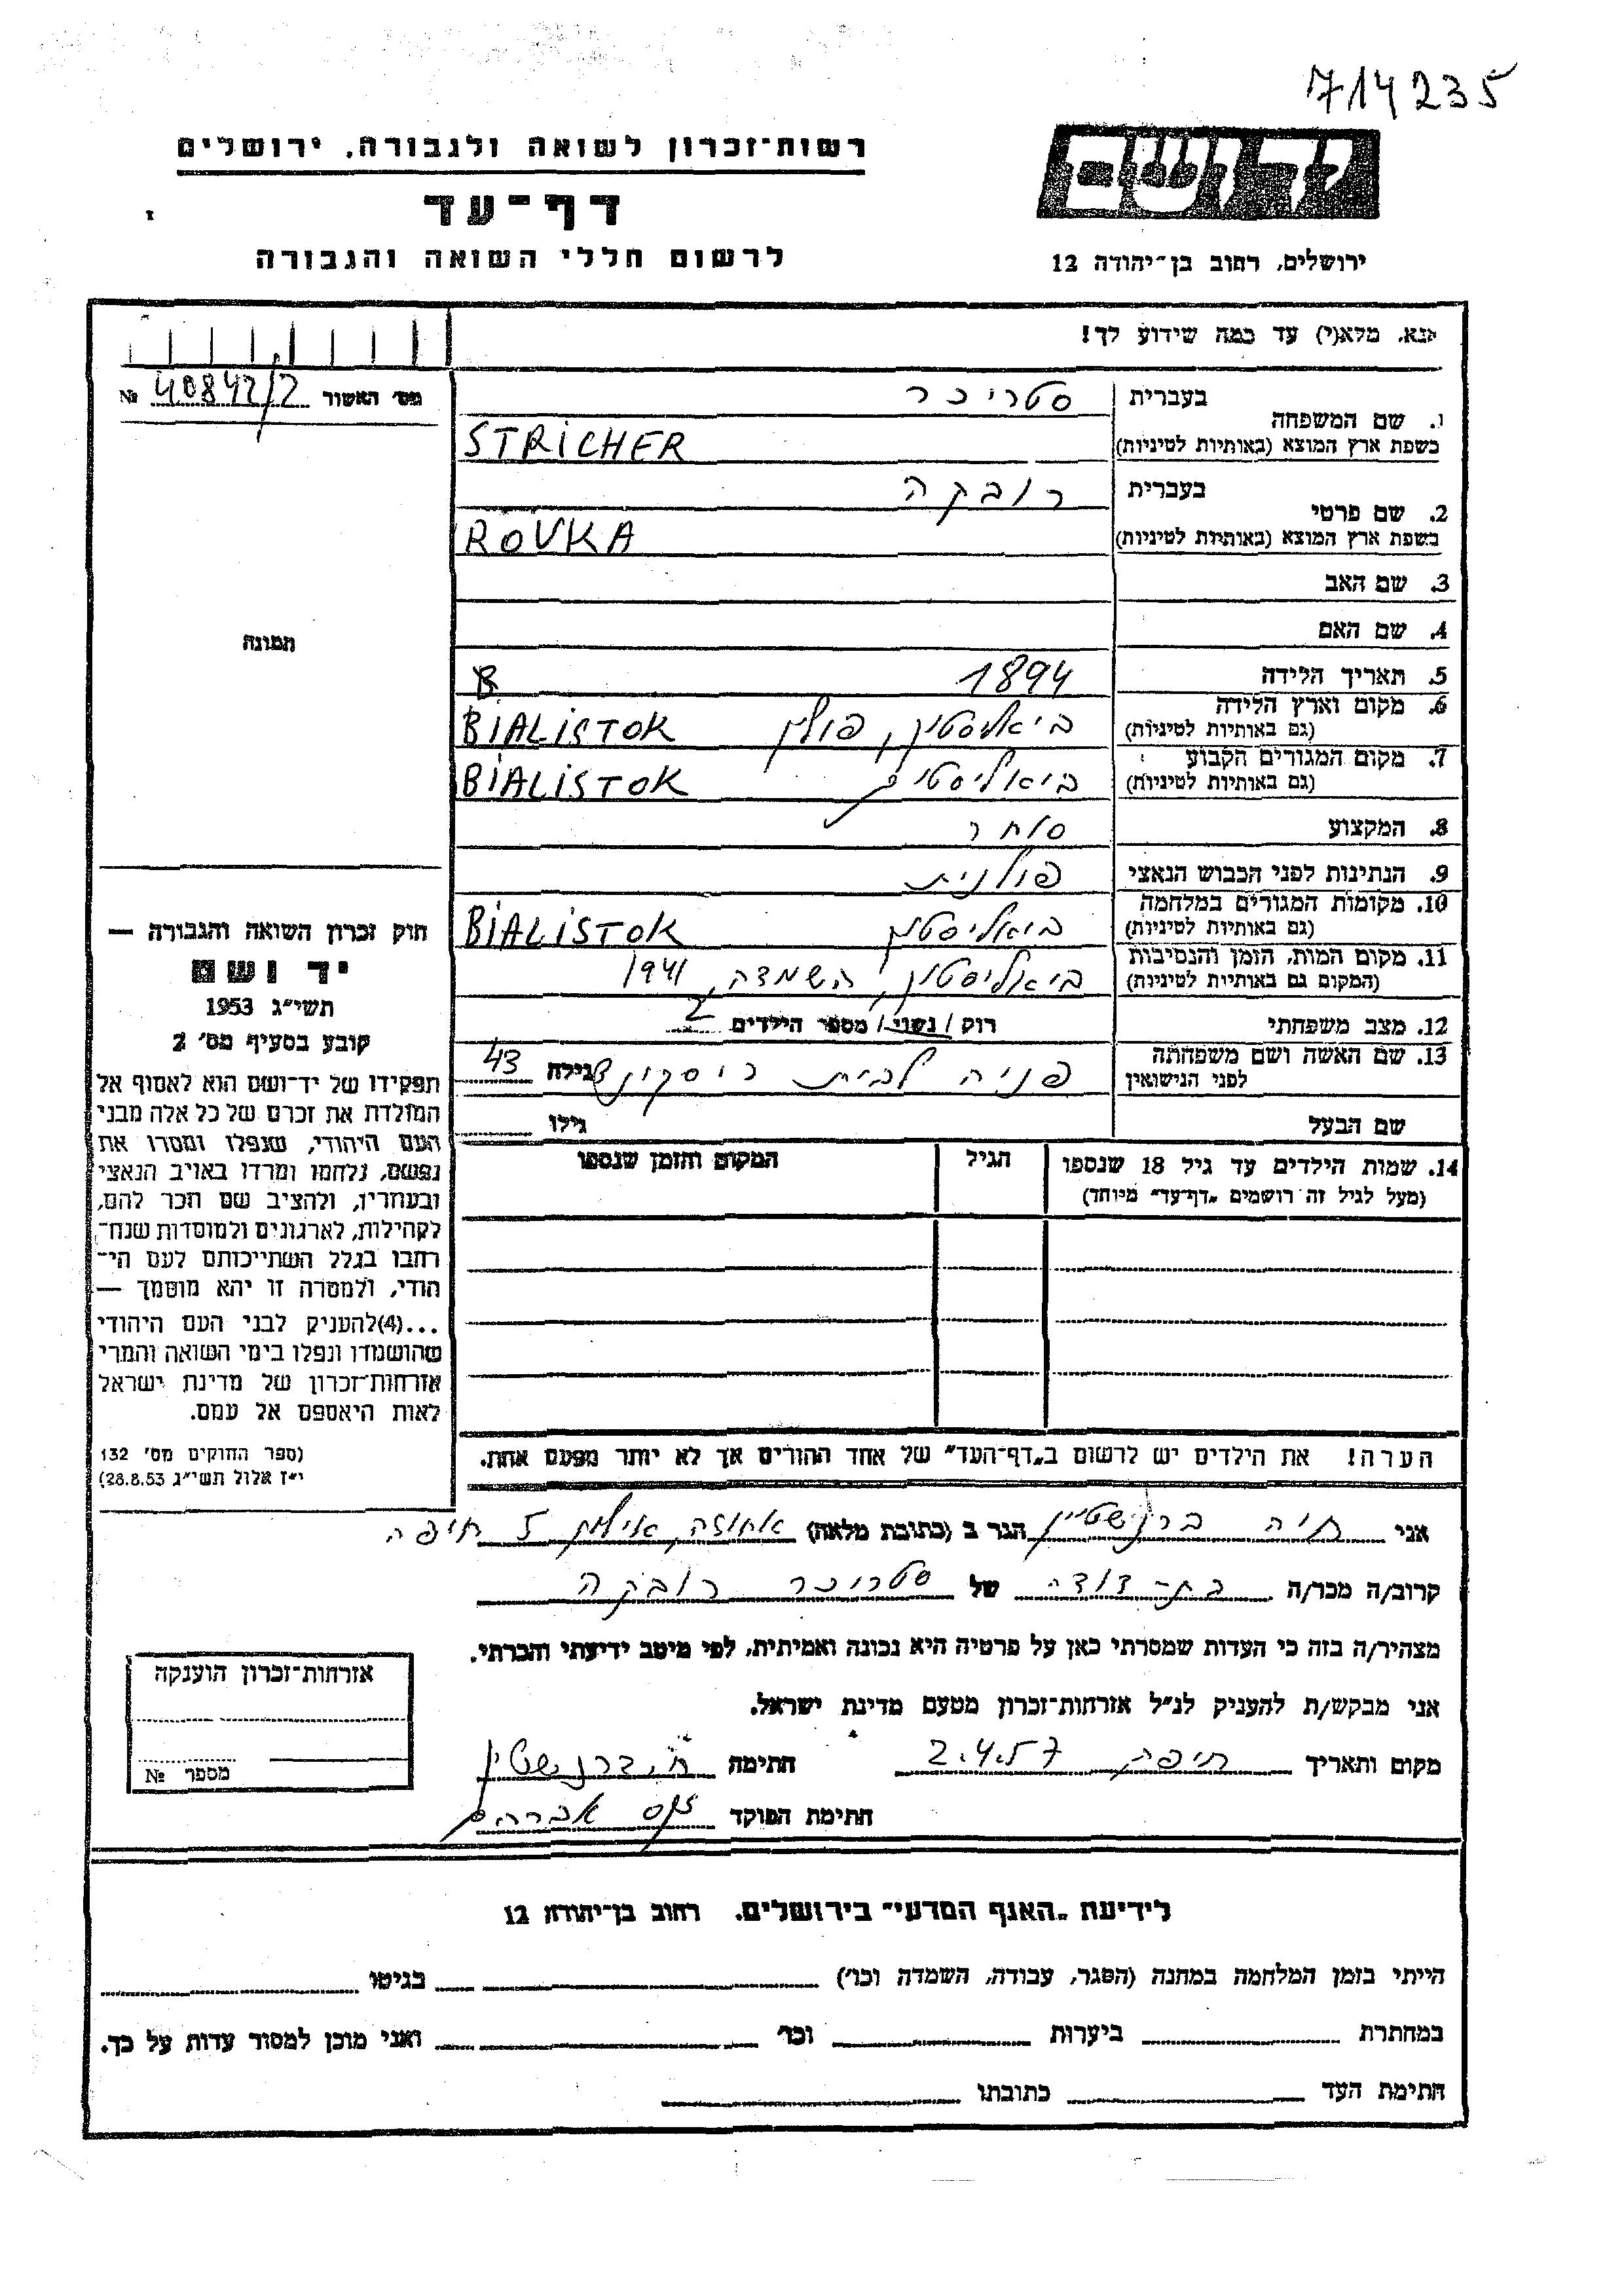 714235
רשות־זכרון לשואה ולגבורה, ירושלים
יד ושם
דף־עד
לרשום חללי השואה והגבורה
ירושלים, רחוב בן־יהודה 12
אנא, מלא(י) עד כמה שידוע לך!
מס׳ האשור 40842/2 №
1. שם המשפחה
בעברית סטריכר
בשפת ארץ המוצא (באותיות לטיניות) STRICHER
2. שם פרטי
בעברית רובקה
בשפת ארץ המוצא (באותיות לטיניות) ROVKA
3. שם האב
4. שם האם
תמונה
5. תאריך הלידה 1894
6. מקום וארץ הלידה
(גם באותיות לטיניות) ביאליסטוק, פולין BIALISTOK
7. מקום המגורים הקבוע
(גם באותיות לטיניות) ביאליסטוק BIALISTOK
8. המקצוע סוחר
9. הנתינות לפני הכבוש הנאצי פולנית
10. מקומות המגורים במלחמה
(גם באותיות לטיניות) ביאליסטוק BIALISTOK
11. מקום המות, הזמן והנסיבות
(המקום גם באותיות לטיניות) ביאליסטוק, השמדה, 1941
12. מצב משפחתי רוק / נשוי / מספר הילדים 2
13. שם האשה ושם משפחתה
לפני הנישואין פניה לבית גילה 43
שם הבעל גילו
14. שמות הילדים עד גיל 18 שנספו הגיל המקום והזמן שנספו
(מעל לגיל זה רושמים „דף־עד” מיוחד)
הערה! את הילדים יש לרשום ב„דף־העד” של אחד ההורים אך לא יותר מפעם אחת.
חוק זכרון השואה והגבורה —
יד ושם
תשי״ג 1953
קובע בסעיף מס׳ 2
תפקידו של יד־ושם הוא לאסוף אל
המולדת את זכרם של כל אלה מבני
העם היהודי, שנפלו ומסרו את
נפשם, נלחמו ומרדו באויב הנאצי
ובעוזריו, ולהציב שם וזכר להם,
לקהילות, לארגונים ולמוסדות שנח־
רבו בגלל השתייכותם לעם הי־
הודי, ולמטרה זו יהא מוסמך —
...(4)להעניק לבני העם היהודי
שהושמדו ונפלו בימי השואה והמרי
אזרחות־זכרון של מדינת ישראל
לאות היאספם אל עמם.
(ספר החוקים מס׳ 132
י״ז אלול תשי״ג 28.8.53)
אני חיה ברנשטיין הגר ב (כתובת מלאה) אחוזה, אילון 5 חיפה
קרוב/ה מכר/ה בת־דודה של סטריכר רובקה
מצהיר/ה בזה כי העדות שמסרתי כאן על פרטיה היא נכונה ואמיתית, לפי מיטב ידיעתי והכרתי.
אני מבקש/ת להעניק לנ״ל אזרחות־זכרון מטעם מדינת ישראל.
מקום ותאריך חיפה 2.4.57 חתימה ח. ברנשטיין
חתימת הפוקד אברהם
אזרחות־זכרון הוענקה
מספר №
לידיעת „האגף המדעי” בירושלים, רחוב בן־יהודה 12
הייתי בזמן המלחמה במחנה (הסגר, עבודה, השמדה וכו׳) בגיטו
במחתרת ביערות וכו׳ ואני מוכן למסור עדות על כך.
חתימת העד כתובתו